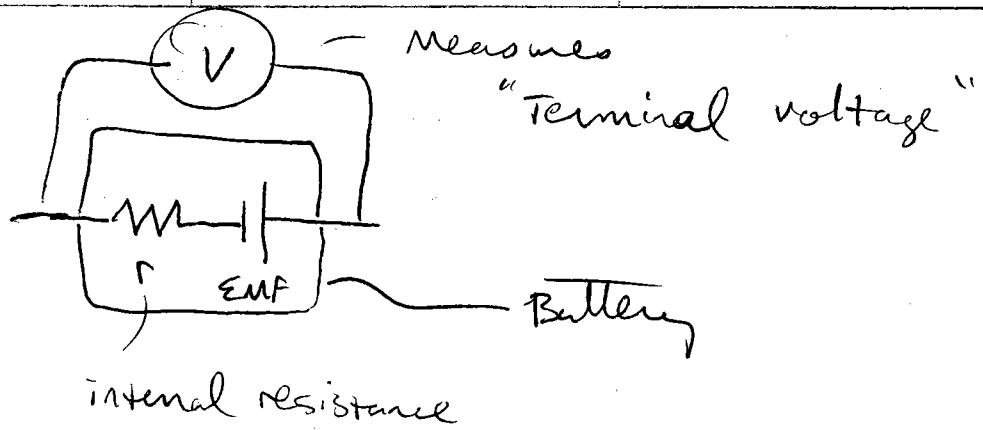 V
— Measures
"Terminal voltage"
r
EMF
Battery
internal resistance